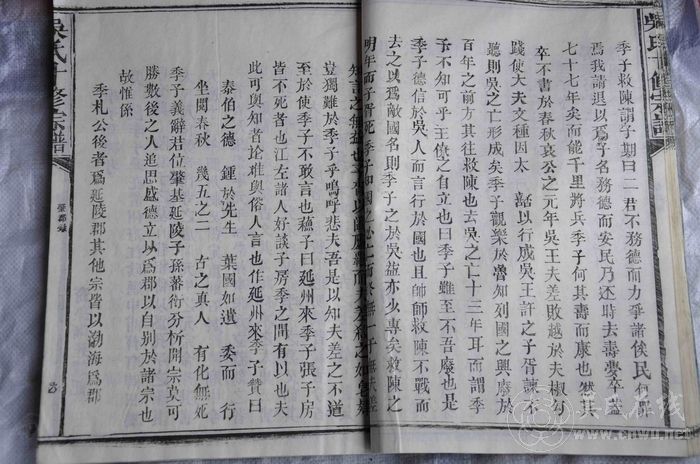 吳氏十修宗譜
季子救陳謂子期曰二君不務德而力爭諸侯民何
焉我請退以爲子名務德而安民乃还時去壽夢卒蓋
七十七年矣而能千里將兵季子何其壽而康也然其
卒不書於春秋哀公之元年吳王夫差敗越於夫椒勾
踐使大夫文種因太 嚭以行成吳王許之子胥諫不
聽則吳之亡形成矣季子觀樂於魯知列國之興廢於
百年之前方其往救陳也去吳之亡十三年耳而謂季
子不知可乎王僚之自立也曰季子雖至不吾廢也是
季子德信於吳人而言行於國也且帥師救陳不戰而
去之以爲敵國名則季子之於吳蓋亦少專矣救陳之
明年而子胥死季子知國之必亡而終無一言於夫差
知言之無益也
豈獨難於季子乎嗚呼悲夫吾是以知夫差之不道
至於使季子不敢言也蘓子曰延州來季子張子房
皆不死者也江左諸人好談子房季之間有以也夫
此可與知者論難與俗人言也作延州來季子贊曰
泰伯之德 鍾於先生 葉國如遺 委而行
坐閱春秋 幾五之二 古之真人 有化無死
季子義辭君位肇基延陵子孫蕃衍分析開宗莫可
勝數後之人追思盛德立以爲郡以自别於諸宗也
故惟係
季札公後者爲延陵郡其他宗皆以渤海爲郡
吳氏十修宗譜
吳氏在线
www.cnwu.net